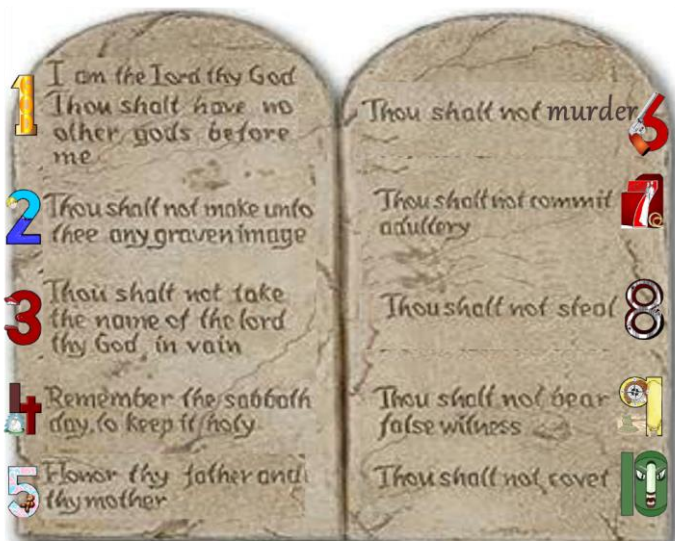 1 I am the Lord thy God
Thou shalt have no
other gods before
me
2 Thou shalt not make unto
thee any graven image
3 Thou shalt not take
the name of the lord
thy God in vain
4 Remember the sabbath
day, to keep it holy
5 Honor thy father and
thy mother
Thou shalt not murder 6
Thou shalt not commit 7
adultery
Thou shalt not steal 8
Thou shalt not bear 9
false witness
Thou shalt not covet 10